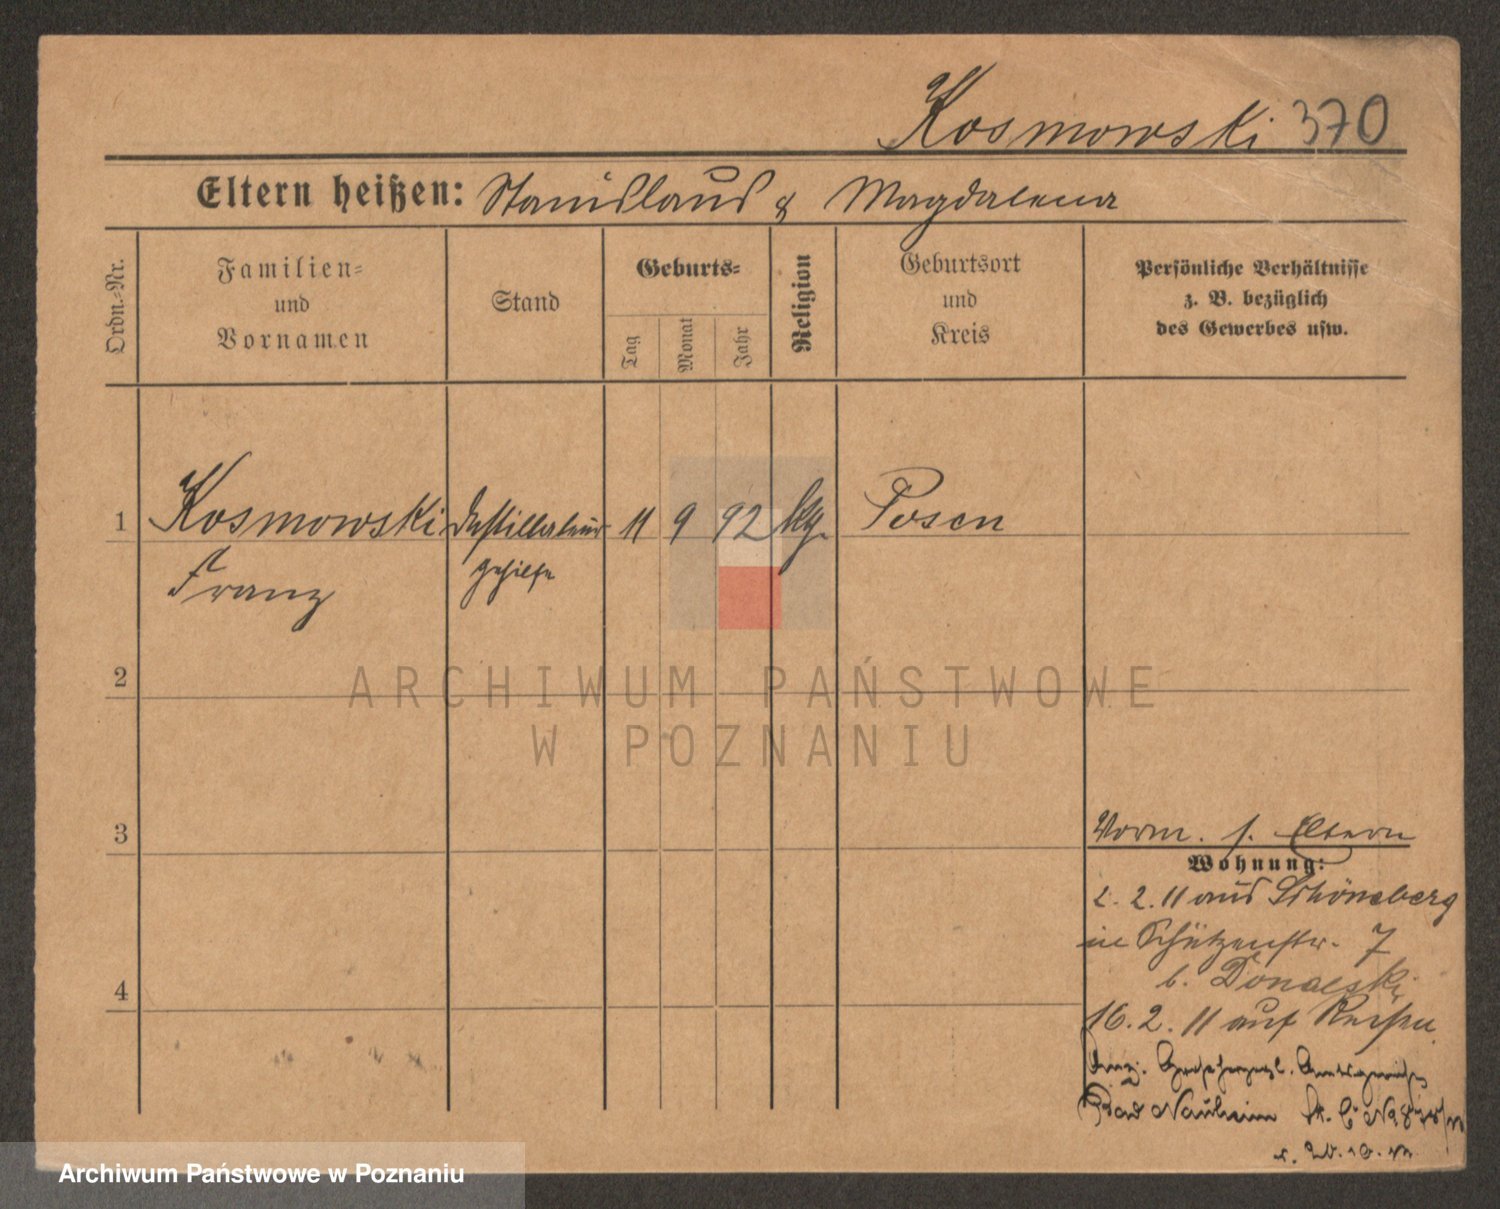 Kosmowski 370
Eltern heißen: Stanislaus & Magdalena
Ordn.-Nr.
Familien-
und
Vornamen
Stand
Geburts-
Tag
Monat
Jahr
Religion
Geburtsort
und
Kreis
Persönliche Verhältnisse
z. B. bezüglich
des Gewerbes usw.
1 Kosmowski Destillateur 11 9 92 kg. Posen
Franz gehilfe
2
ARCHIWUM PAŃSTWOWE
W POZNANIU
3
Vorm. s. Eltern
Wohnung:
2. 2. 11 aus Schöneberg
in Schützenstr. 7
b.
4
16. 2. 11 auf Reisen
Großherzogl. Amtsgericht
Bad Nauheim
Archiwum Państwowe w Poznaniu